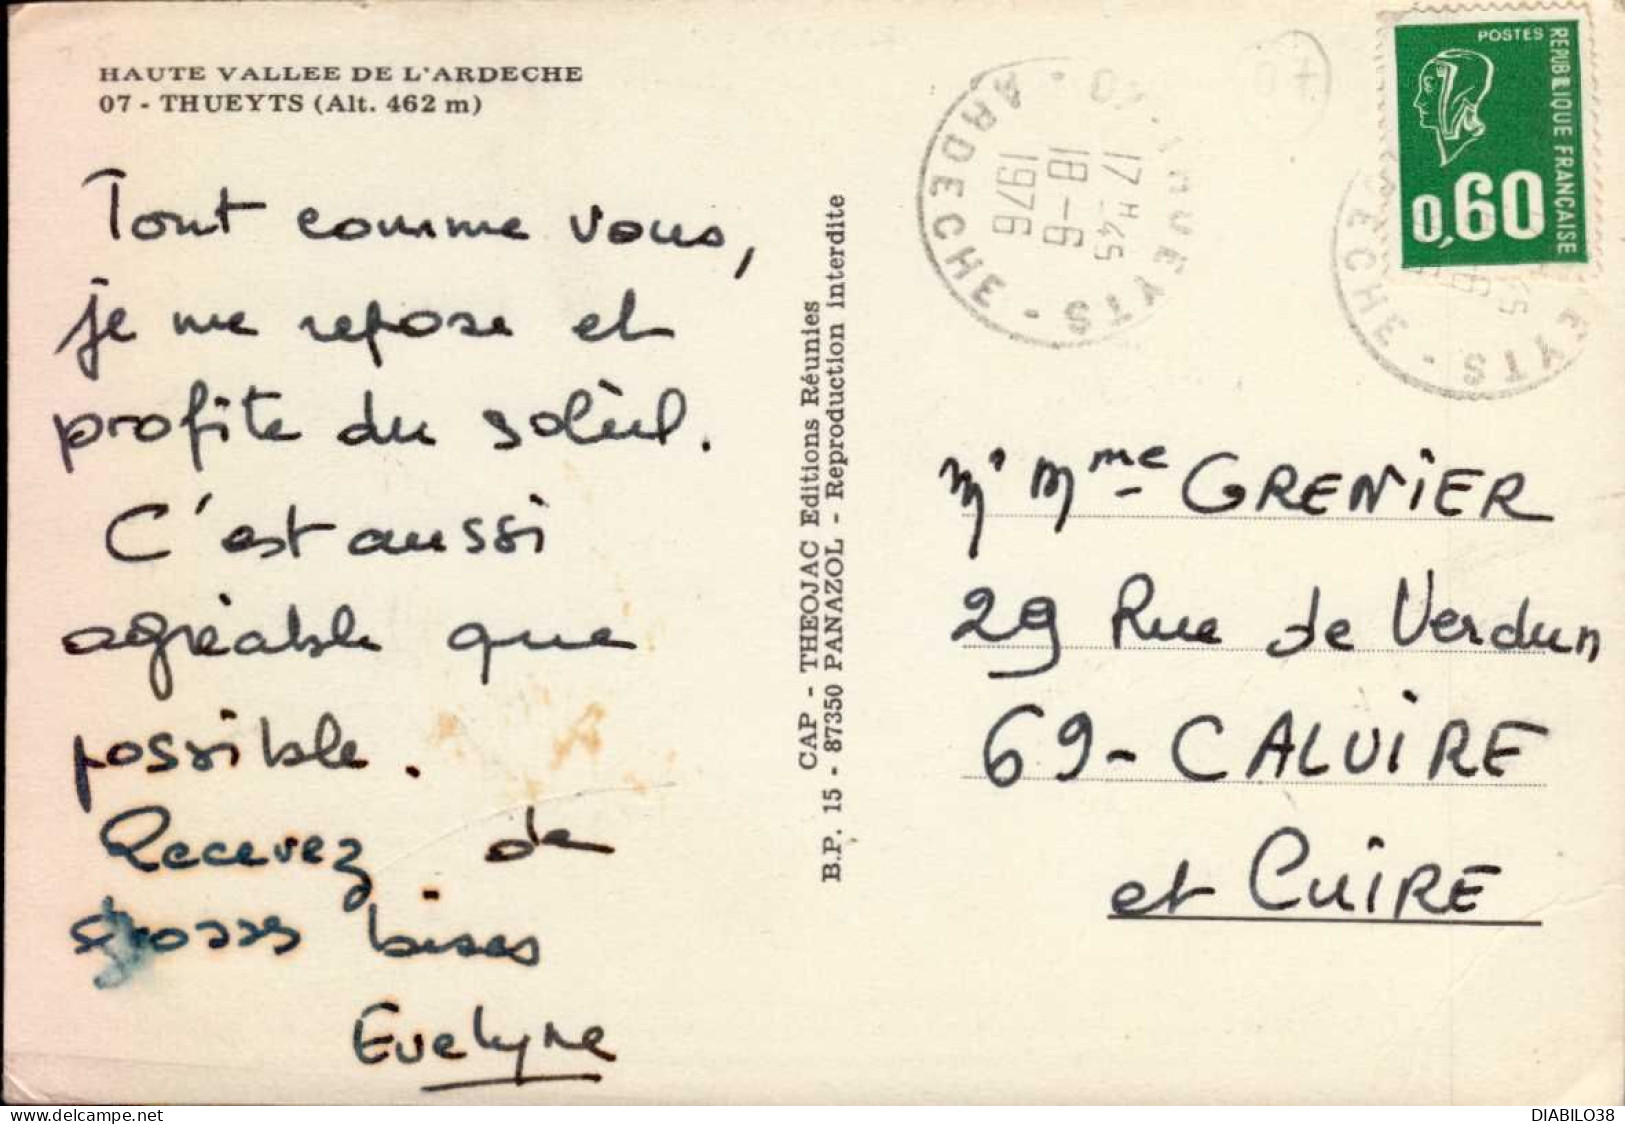 HAUTE VALLEE DE L'ARDECHE
07 - THUEYTS (Alt. 462 m)
Tout comme vous,
je me repose et
profite du soleil.
C'est aussi
agréable que
possible.
Recevez de
grosses bises
Evelyne
CAP - THEOJAC Editions Réunies
B.P. 15 - 87350 PANAZOL - Reproduction interdite
07 - THUEYTS - ARDECHE
17 H 45
18 - 6
1976
07
POSTES
REPUBLIQUE FRANÇAISE
0,60
EYTS - ECHE
Mr Mme GRENIER
29 Rue de Verdun
69 - CALUIRE
et CUIRE
DIABILO38